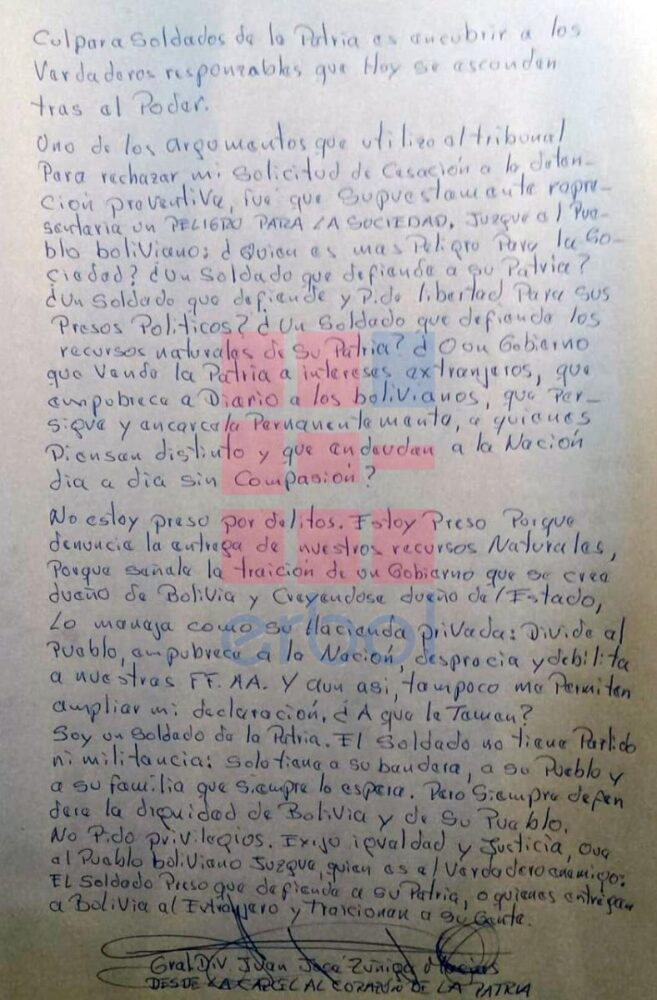 Culpar a Soldados de la Patria es encubrir a los
Verdaderos responzables que Hoy se esconden
tras el Poder.
Uno de los argumentos que utilizo el tribunal
Para rechazar mi Solicitud de Cesación a la deten-
ción preventiva, fue que Supuestamente repre-
sentaria un PELIGRO PARA LA SOCIEDAD, Juzgue el Pue-
blo boliviano: ¿Quien es mas Peligro Para la So-
ciedad? ¿Un Soldado que defiende a su Patria?
¿Un Soldado que defiende y Pide libertad Para sus
Presos Politicos? ¿Un Soldado que defiende los
recursos naturales de Su Patria? ¿O un Gobierno
que Vende la Patria a intereses extranjeros, que
empobrece a Diario a los bolivianos, que Per-
sigue y encarcela Permanentemente, a quienes
Piensan distinto y que endeudan a la Nación
dia a dia sin Compasión?
No estoy preso por delitos. Estoy Preso Porque
denuncie la entrega de nuestros recursos Naturales,
Porque señale la traición de un Gobierno que se cree
dueño de Bolivia y Creyendose dueño del Estado,
Lo maneja como su Hacienda privada: Divide al
Pueblo, empobrece a la Nación, desprecia y debilita
a nuestras FF.AA. Y aun asi, tampoco me Permiten
ampliar mi declaración. ¿A que le Temen?
Soy un Soldado de la Patria. El Soldado no tiene Partido
ni militancia: Solo tiene a su bandera, a su Pueblo y
a su familia que siempre lo espera. Pero Siempre defen
dera la dignidad de Bolivia y de Su Pueblo.
No Pido privilegios. Exijo igualdad y Justicia, que
el Pueblo boliviano Juzgue, quien es el Verdadero enemigo:
El Soldado Preso que defiende a su Patria, o quienes entregan
a Bolivia al Extranjero y Traicionan a Su Gente.
Gral. Div. Juan José Zúñiga Macías
DESDE LA CARCEL AL CORAZÓN DE LA PATRIA
erbol